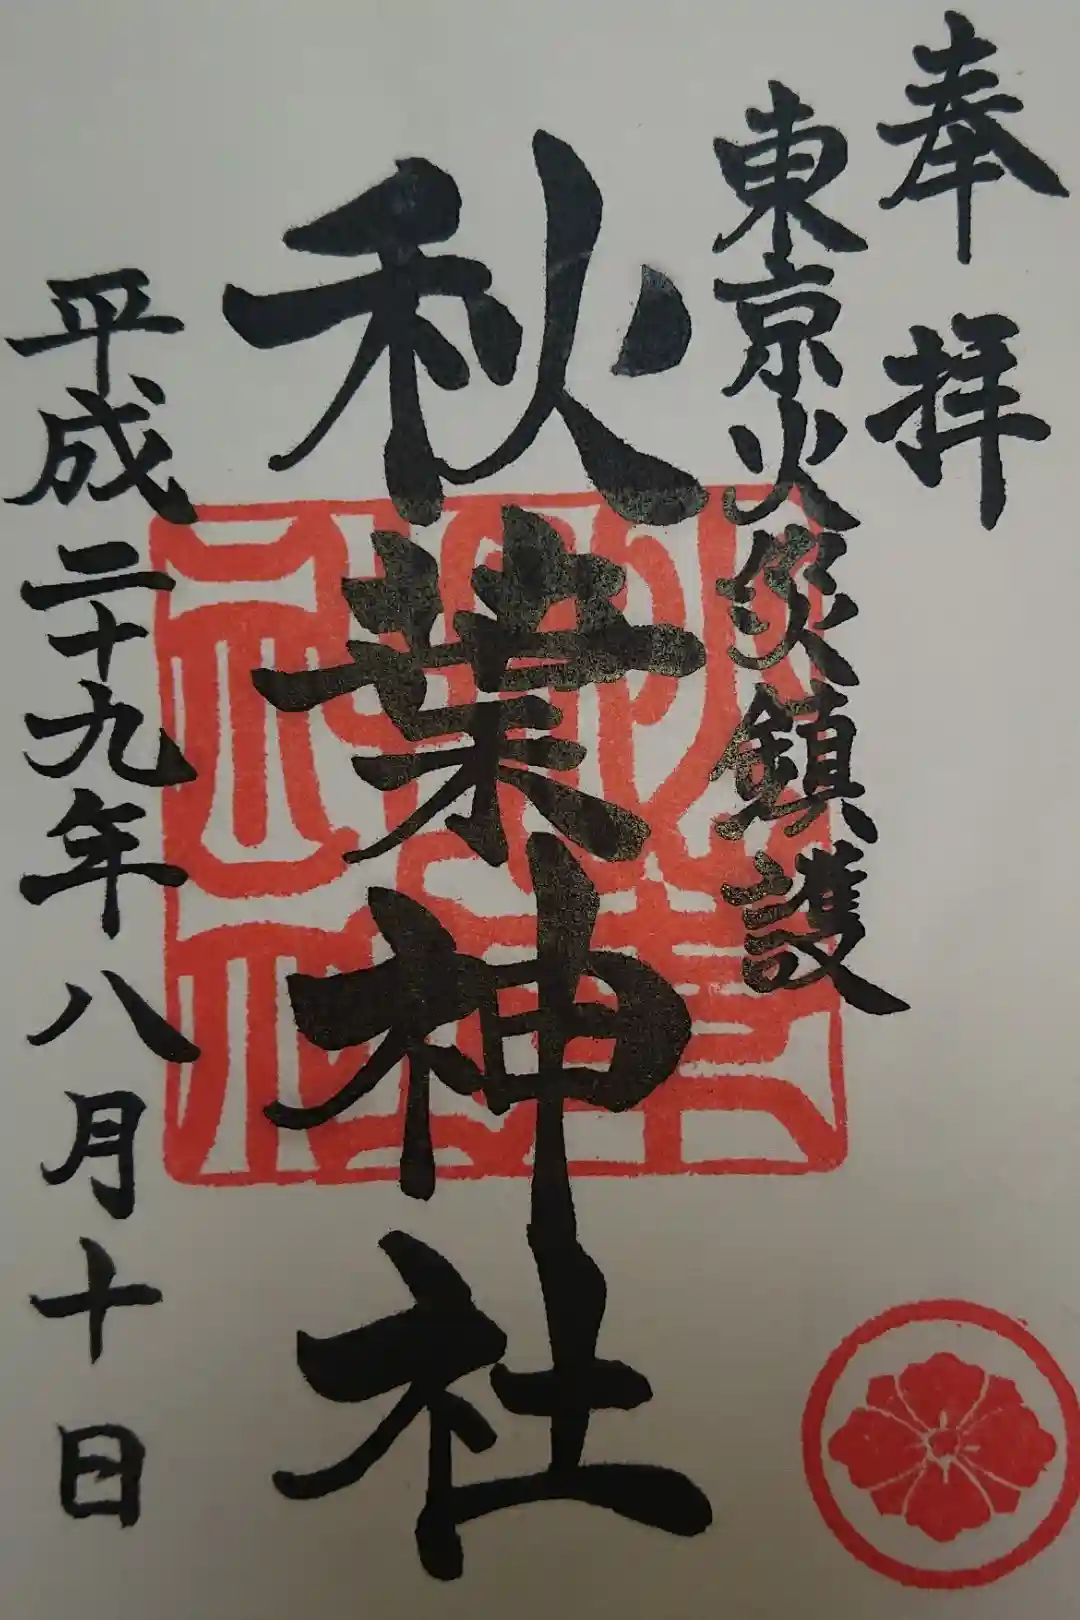 奉拝
東京火災鎮護
秋葉神社
平成二十九年八月十日